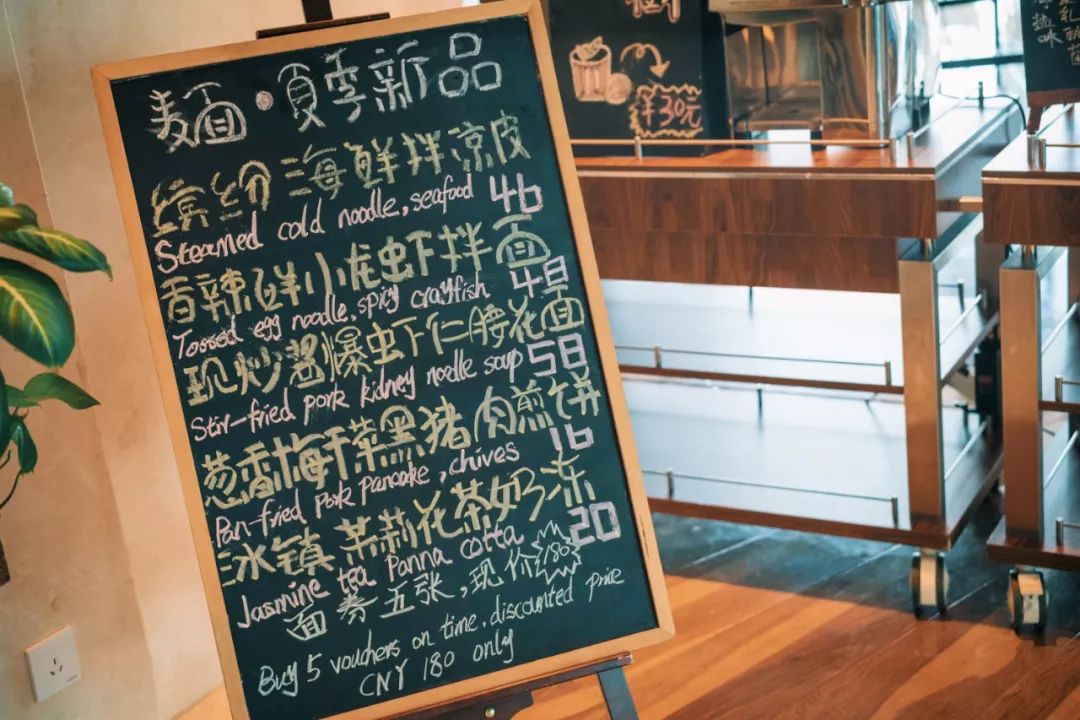 麦面·夏季新品
缤纷海鲜拌凉皮
Steamed cold noodle, seafood 46
香辣鲜小龙虾拌面
Tossed egg noodle, spicy crayfish 48
现炒酱爆虾仁腰花面
Stir-fried pork kidney noodle soup 58
葱香梅干菜黑猪肉煎饼
Pan-fried pork pancake, chives 16
冰镇茉莉花茶奶冻
Jasmine tea Panna cotta 20
面券五张,现价180
Buy 5 vouchers on time, discounted price
CNY 180 only
羊30元